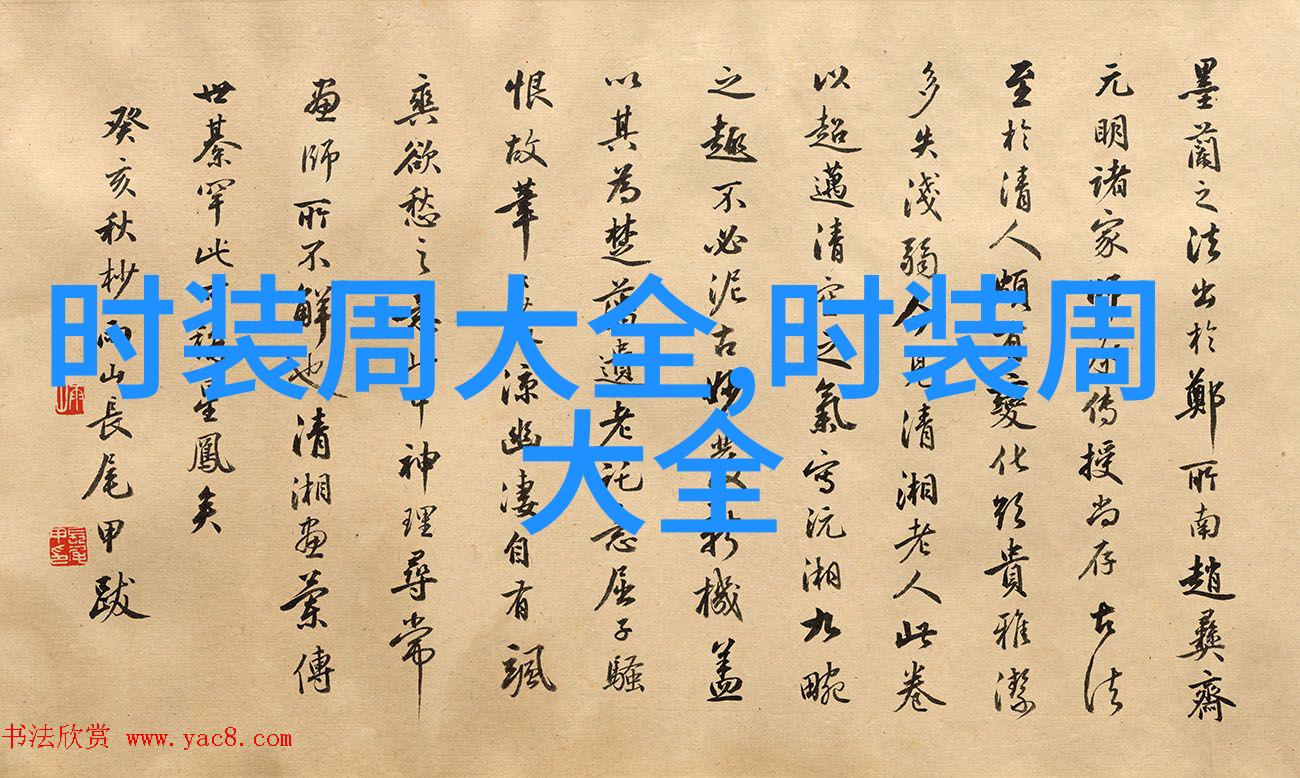 墨蘭之法出於鄭所南趙彝齋
元明諸家傳授尚存古法
至於清人頗變化貴雅潔
多失淺弱今見清湘老人此卷
以超邁清空之氣寫沅湘九畹
之趣不必泥古妙機蓋
以其為楚藩遺老託屈子騷
恨故筆涼幽淒自有颯
爽欲愁之神理尋常
畫師所不解也清湘畫蘭傳
世綦罕此星鳳矣
癸亥秋杪雨山長尾甲跋
时装周大全,时装周
大全
书法欣赏 www.yac8.com